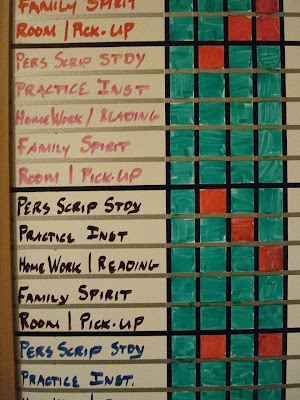 FAMILY SPIRIT
ROOM | PICK-UP
PERS SCRIP STDY
PRACTICE INST
HOMEWORK / READING
FAMILY SPIRIT
ROOM | PICK-UP
PERS SCRIP STDY
PRACTICE INST
HOMEWORK | READING
FAMILY SPIRIT
ROOM | PICK-UP
PERS SCRIP STDY
PRACTICE INST.